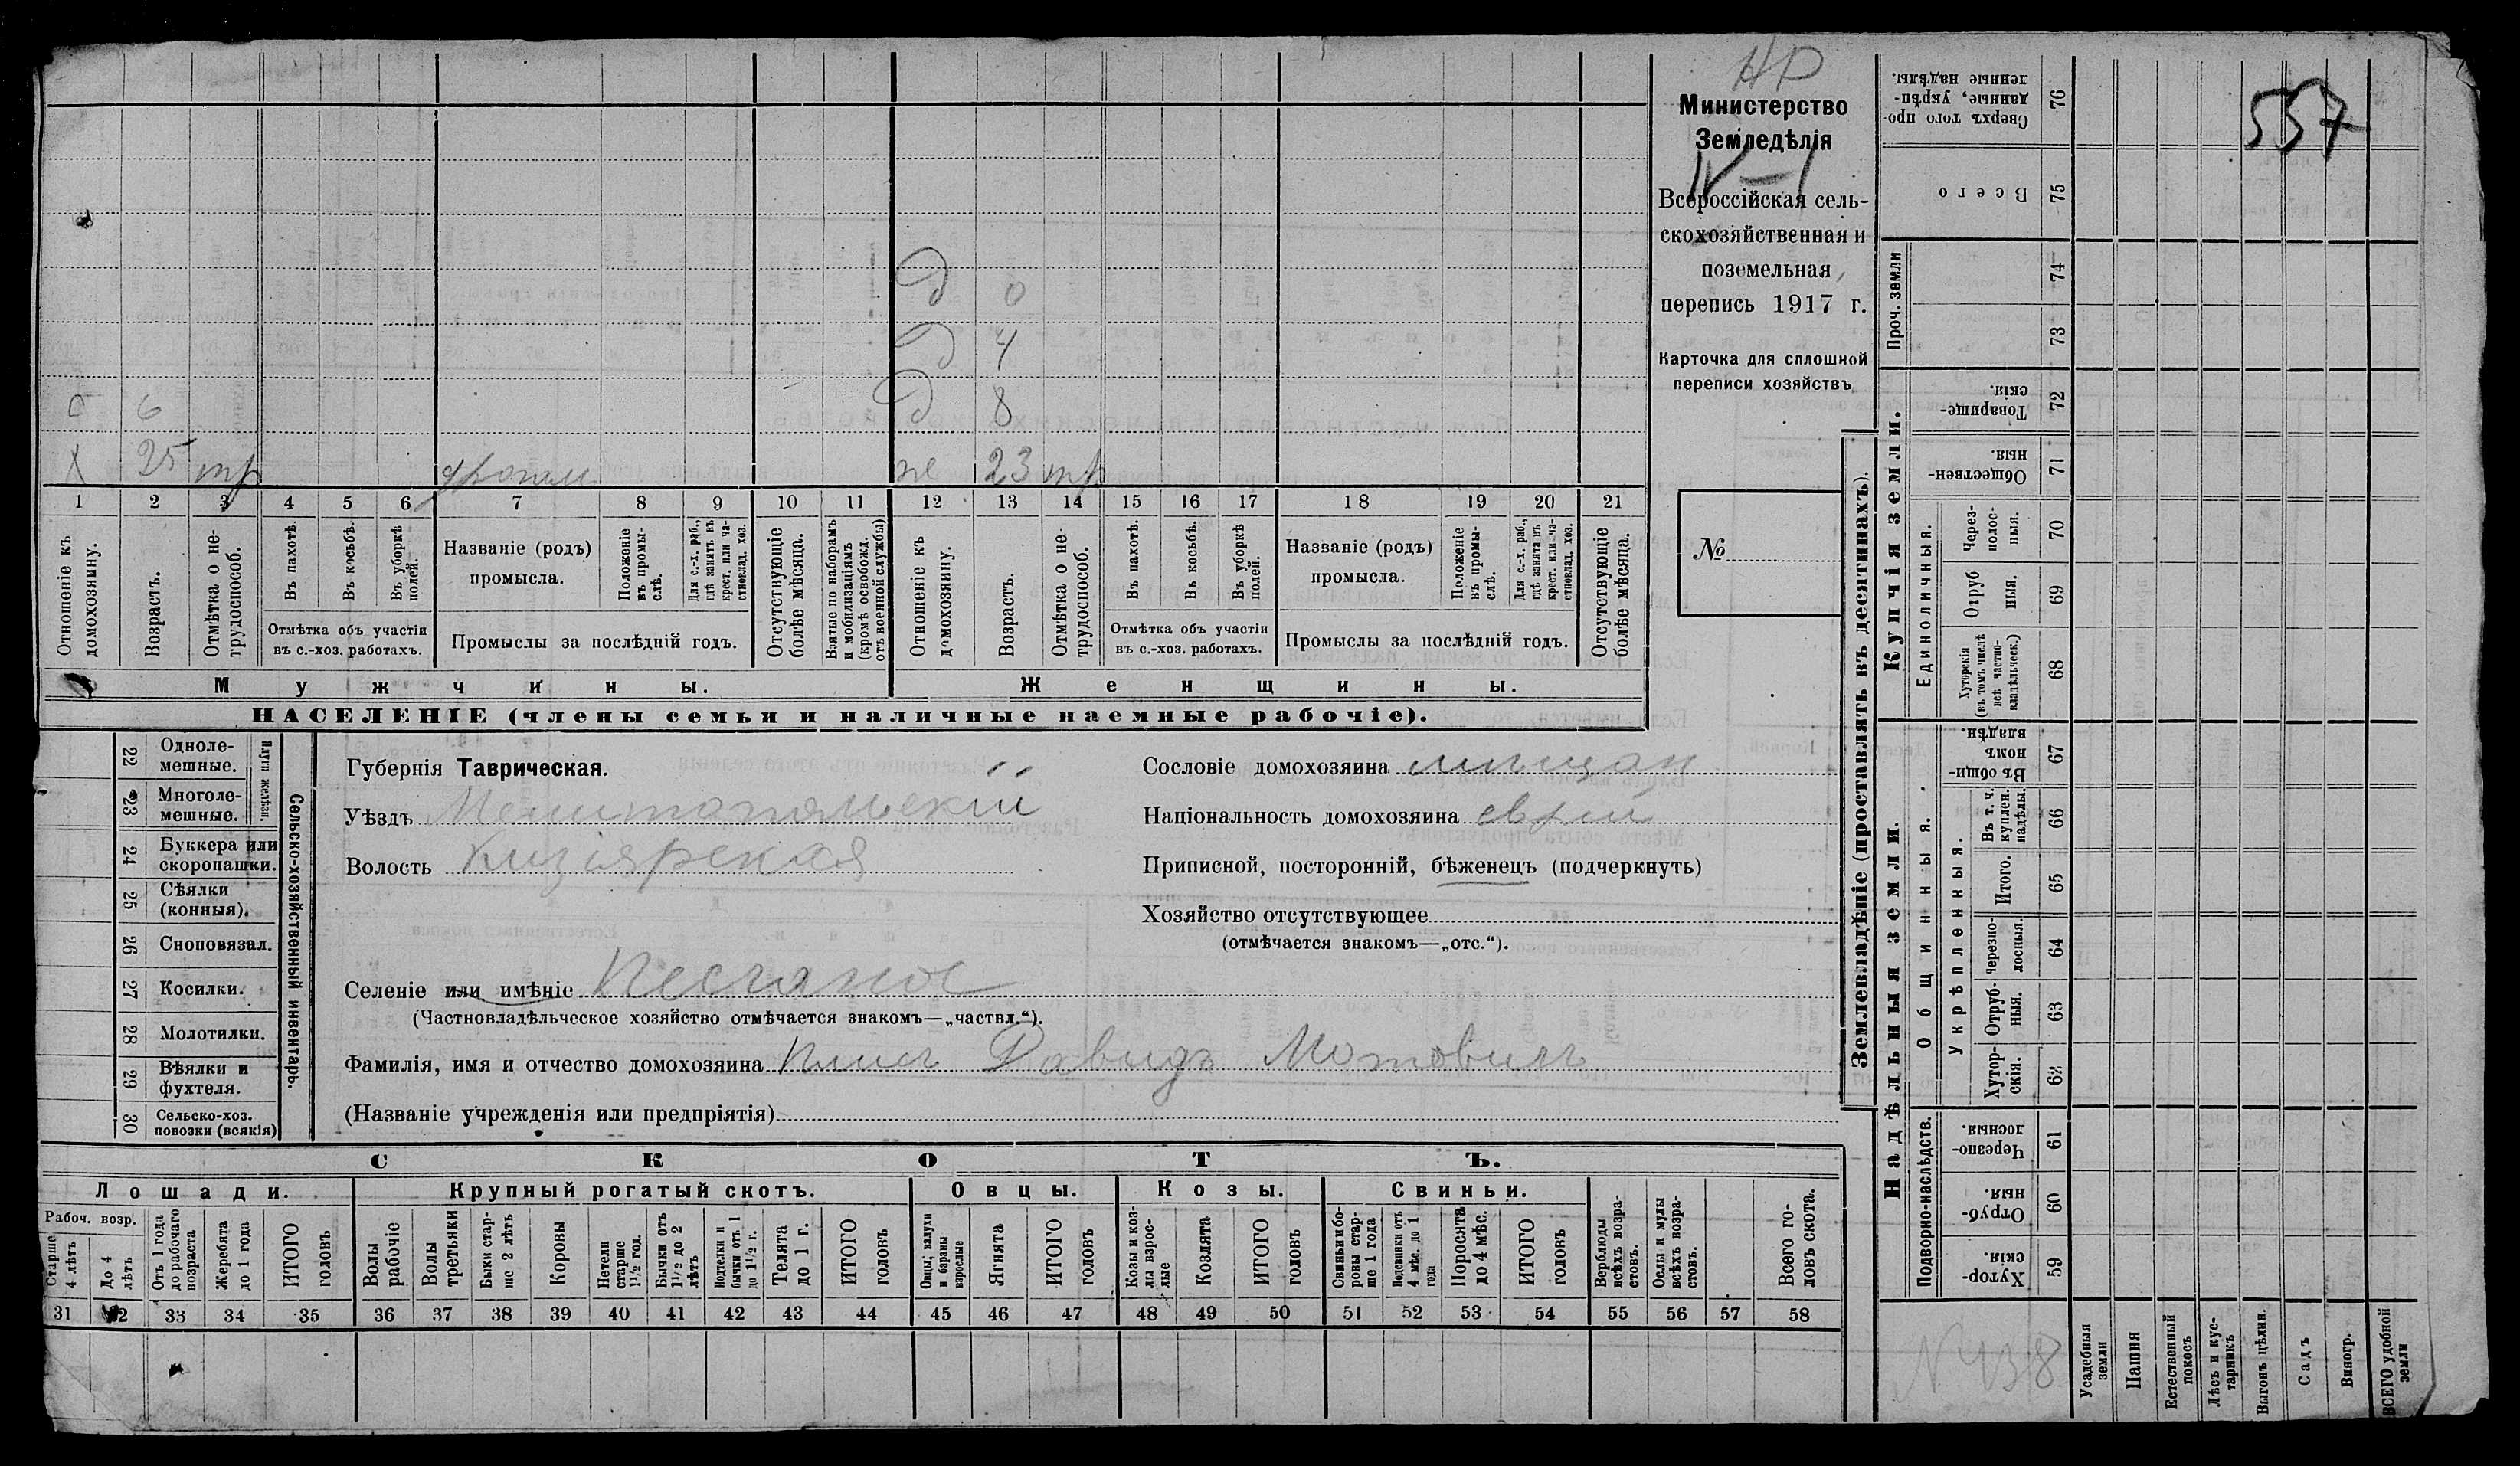 НР
Министерство
Земледѣлія
IV-1
Всероссійская сель-
скохозяйственная и
поземельная
перепись 1917 г.
Карточка для сплошной
переписи хозяйствъ
№
557
д 0
д 4
б 6 д 8
х 25 тр ж 23 тр
1 2 3 4 5 6 7 8 9 10 11 12 13 14 15 16 17 18 19 20 21
Отношеніе къ домохозяину.
Возрастъ.
Отмѣтка о не-трудоспособ.
Въ пахотѣ.
Въ косьбѣ.
Въ уборкѣ полей.
Отмѣтка объ участіи
въ с.-хоз. работахъ.
Названіе (родъ)
промысла.
Положеніе въ промы-слѣ.
Для с.-х. раб., гдѣ занятъ въ крест. или ча-стновлад. хоз.
Промыслы за послѣдній годъ.
Отсутствующіе болѣе мѣсяца.
Взятые по наборамъ и мобилизаціямъ (кромѣ освобожд. отъ военной службы)
Отношеніе къ домохозяину.
Возрастъ.
Отмѣтка о не-трудоспособ.
Въ пахотѣ.
Въ косьбѣ.
Въ уборкѣ полей.
Отмѣтка объ участіи
въ с.-хоз. работахъ.
Названіе (родъ)
промысла.
Положеніе въ промы-слѣ.
Для с.-х. раб., гдѣ занята въ крест. или ча-стновлад. хоз.
Промыслы за послѣдній годъ.
Отсутствующіе болѣе мѣсяца.
Мужчины. Женщины.
НАСЕЛЕНІЕ (члены семьи и наличные наемные рабочіе).
22 Одноле-мешные.
23 Многоле-мешные.
Плуги желѣзн.
24 Буккера или скоропашки.
25 Сѣялки (конныя).
26 Сноповязал.
27 Косилки.
28 Молотилки.
29 Вѣялки и фухтеля.
30 Сельско-хоз. повозки (всякія)
Сельско-хозяйственный инвентарь.
Губернія Таврическая.
Уѣздъ Мелитопольскій
Волость Кизіярская
Сословіе домохозяина мѣщан
Національность домохозяина еврей
Приписной, посторонній, бѣженецъ (подчеркнуть)
Хозяйство отсутствующее
(отмѣчается знакомъ—„отс.“).
Селеніе или имѣніе Песчаное
(Частновладѣльческое хозяйство отмѣчается знакомъ—„частвл.“).
Фамилія, имя и отчество домохозяина Плисъ Давидъ Мотовичъ
(Названіе учрежденія или предпріятія)
СКОТЪ.
Лошади. Крупный рогатый скотъ. Овцы. Козы. Свиньи.
Рабоч. возр.
Старше 4 лѣтъ
До 4 лѣтъ
Отъ 1 года до рабочаго возраста
Жеребята до 1 года
ИТОГО головъ
Волы рабочіе
Волы третьяки
Быки стар-ше 2 лѣтъ
Коровы
Нетели старше 1½ год.
Бычки отъ 1½ до 2 лѣтъ
Подтелки и бычки отъ 1 до 1½ г.
Телята до 1 г.
ИТОГО головъ
Овцы; валухи и бараны взрослые
Ягнята
ИТОГО головъ
Козы и коз-лы взрос-лые
Козлята
ИТОГО головъ
Свиньи и бо-ровы стар-ше 1 года
Подсвинки отъ 4 мѣс. до 1 года
Поросята до 4 мѣс.
ИТОГО головъ
Верблюды всѣхъ возра-стовъ.
Ослы и мулы всѣхъ возра-стовъ.
Всего го-ловъ скота.
31 32 33 34 35 36 37 38 39 40 41 42 43 44 45 46 47 48 49 50 51 52 53 54 55 56 57 58
Землевладѣніе (проставлять въ десятинахъ).
Купчія земли.
Надѣльныя земли.
Сверхъ того про-данные, укрѣп-ленные надѣлы. 76
Всего 75
Проч. земли
74
73
Товарище-скія. 72
Обществен-ныя. 71
Единоличныя.
Через-полос-ныя. 70
Отруб ныя. 69
Хуторскія (въ томъ числѣ всѣ частно-владѣльческ.) 68
Общинныя.
Въ общи-номъ владѣн. 67
Укрѣпленныя.
Въ т. ч. куплен. надѣлы. 66
Итого. 65
Черезпо-лосныя. 64
Отруб-ныя. 63
Хутор-скія. 62
Подворно-наслѣдств.
Черезпо-лосныя. 61
Отруб-ныя. 60
Хутор-скія. 59
N 438
Усадебныя земли
Пашня
Естественный покосъ
Лѣсъ и кус-тарникъ
Выгонъ цѣлин.
Садъ
Виногр.
ВСЕГО удобной земли